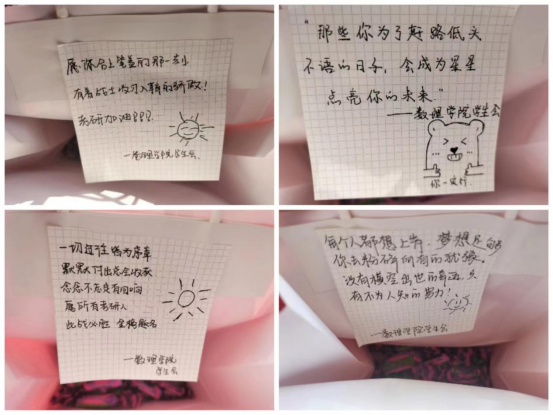 愿你合上笔盖的那一刻
有着战士收刀入鞘的骄傲!
考研加油!!!
—数理学院学生会
"那些你为了赶路低头
不语的日子,会成为星星
点亮你的未来"
——数理学院学生会
你一定行
一切过往皆为序章
默默付出总会收获
念念不忘必有回响
愿所有考研人
此战必胜 金榜题名
—数理学院
学生会
每个人都想上岸,梦想足够
你去粉碎所有的
没有横空出世的奇迹,只
有不为人知的努力!
—数理学院学生会